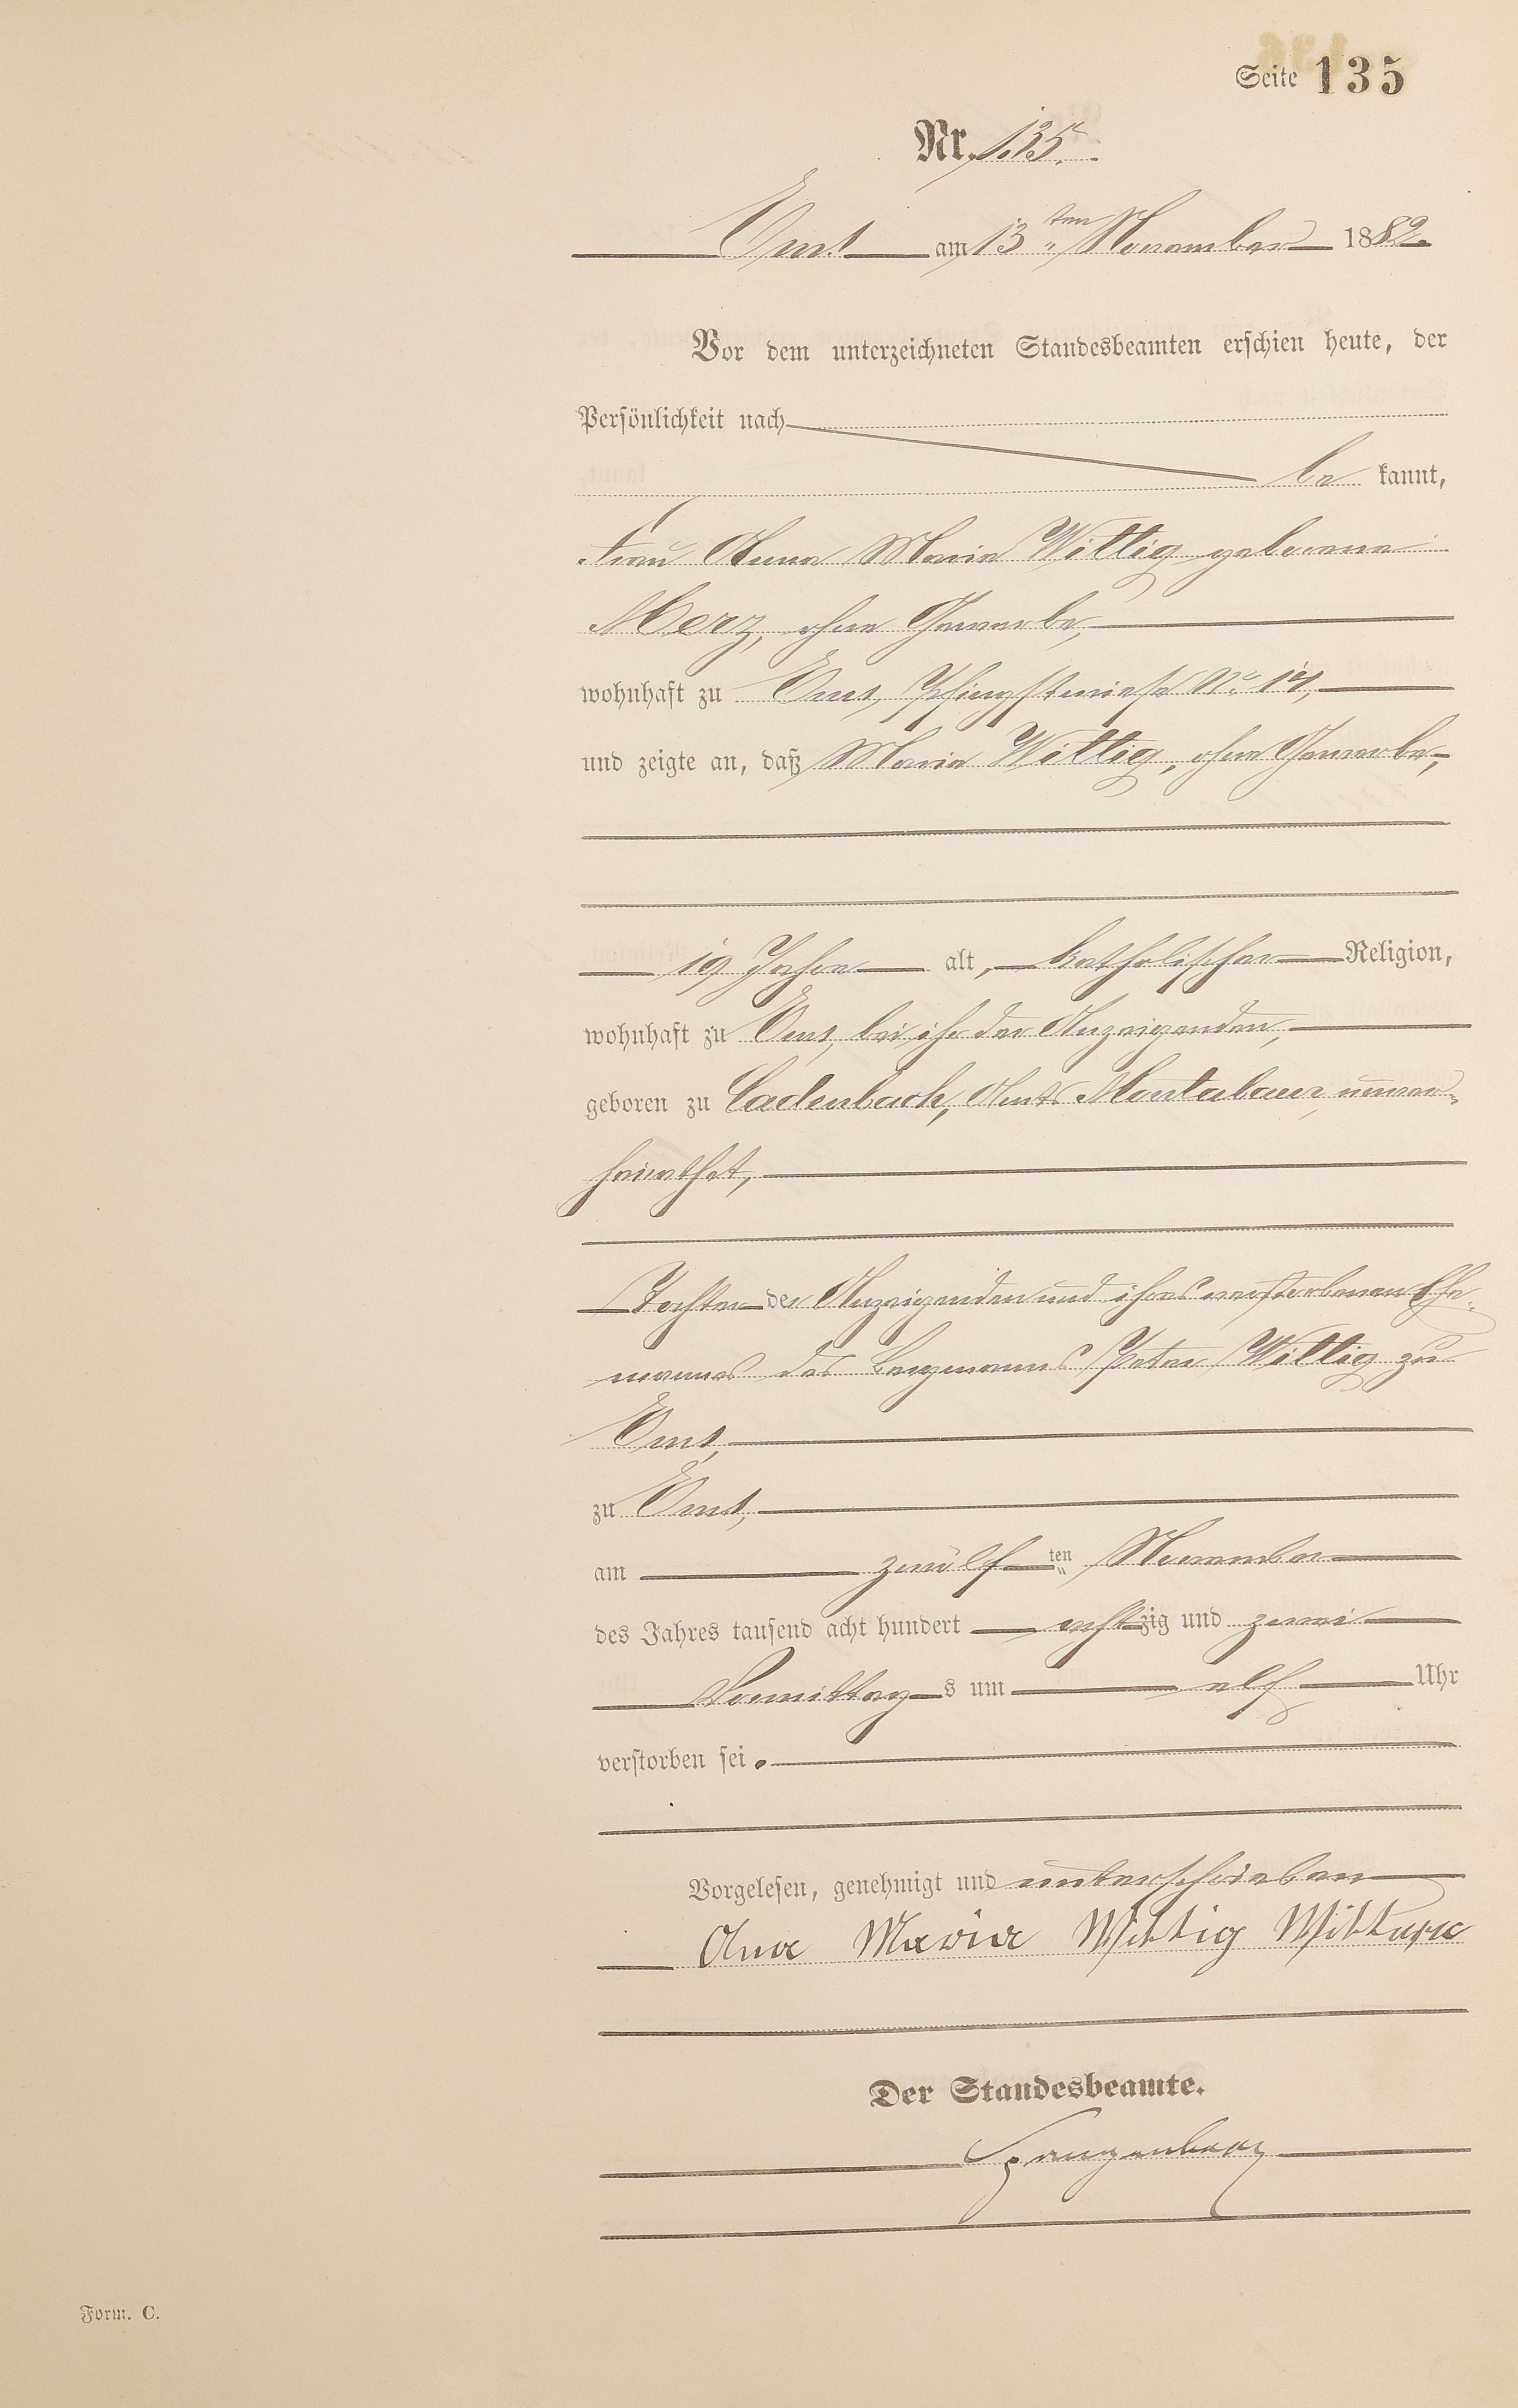 Seite 135
Nr. 135.
Ems am 13ten November 1882.
Vor dem unterzeichneten Standesbeamten erschien heute, der
Persönlichkeit nach
be kannt,
Frau Anna Maria Wittig geborene
Merz, ohne Gewerbe,
wohnhaft zu Ems, Pfingstwiese No. 14,
und zeigte an, daß Maria Wittig, ohne Gewerbe,
19 Jahre alt, katholischer Religion,
wohnhaft zu Ems, bei ihr der Anzeigenden,
geboren zu Cadenbach, Amts Montabaur, unver-
heirathet,
Tochter der Anzeigenden und ihres verstorbenen Ehe-
mannes des Bergmanns Peter Wittig zu
Ems,
zu Ems,
am zwölf ten November
des Jahres tausend acht hundert acht zig und zwei
Vormittag s um elf Uhr
verstorben sei.
Vorgelesen, genehmigt und unterschrieben
Ana Maria Wittig Wittwe
Der Standesbeamte.
Spangenberg
Form. C.